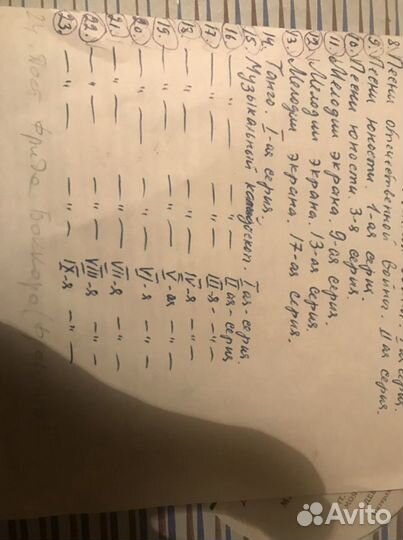 серия.
8 Песни отечественной войны. II ая серия.
9. Песни юности. 1-ая серия
10. Песни юности 3-я серия.
11. Мелодии экрана. 9-ая серия.
12. Мелодии экрана. 13-ая серия
13. Мелодии экрана. 17-ая серия.
14. Танго. I-ая серия.
15. Музыкальный калейдоскоп. I ая-серия.
16. —"— —"— II ая-серия
17. —"— —"— III-я —"—
18. —"— —"— IV-я —"—
19. —"— —"— V-ая —"—
20. —"— —"— VI-я —"—
21. —"— —"— VII-я —"—
22. —"— —"— VIII-я —"—
23. —"— —"— IX-я —"—
24. Поёт Фрида Боккара
Avito